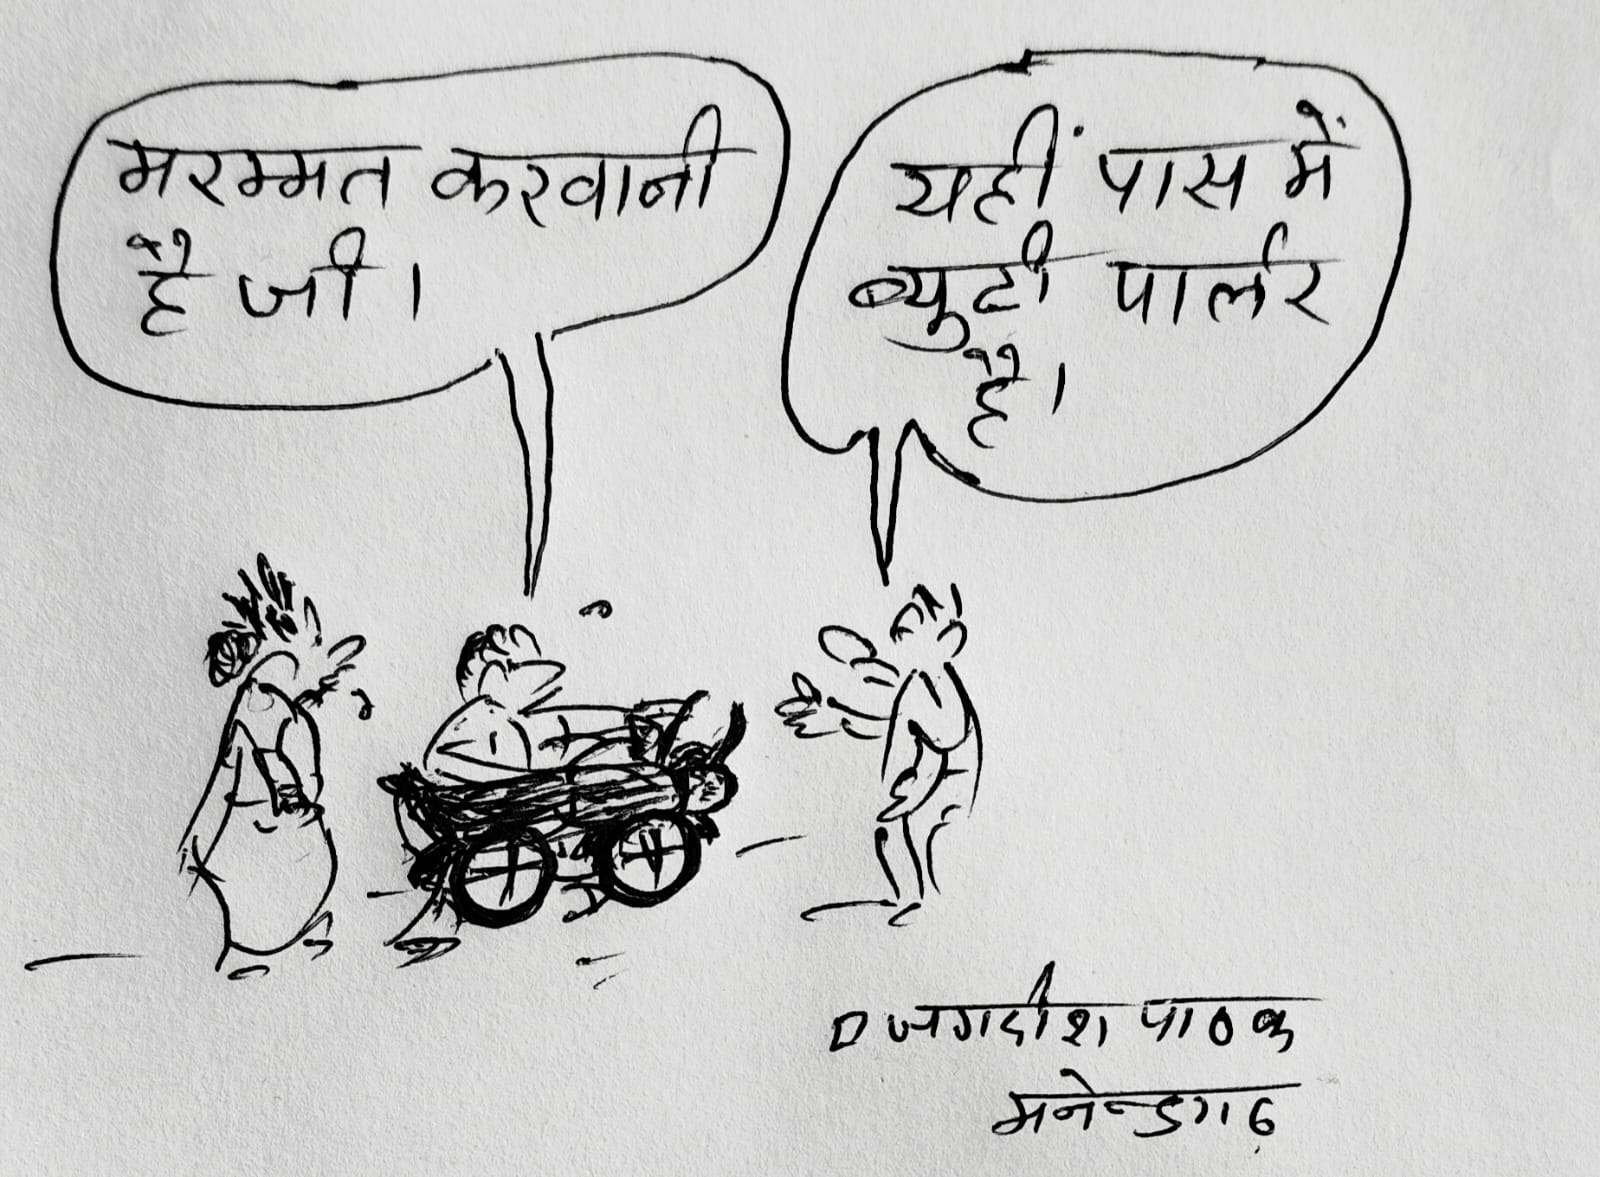 मरम्मत करवानी
है जी।
यहीं पास में
ब्युटी पार्लर
है।
जगदीश पाठक
मनेन्द्रगढ़